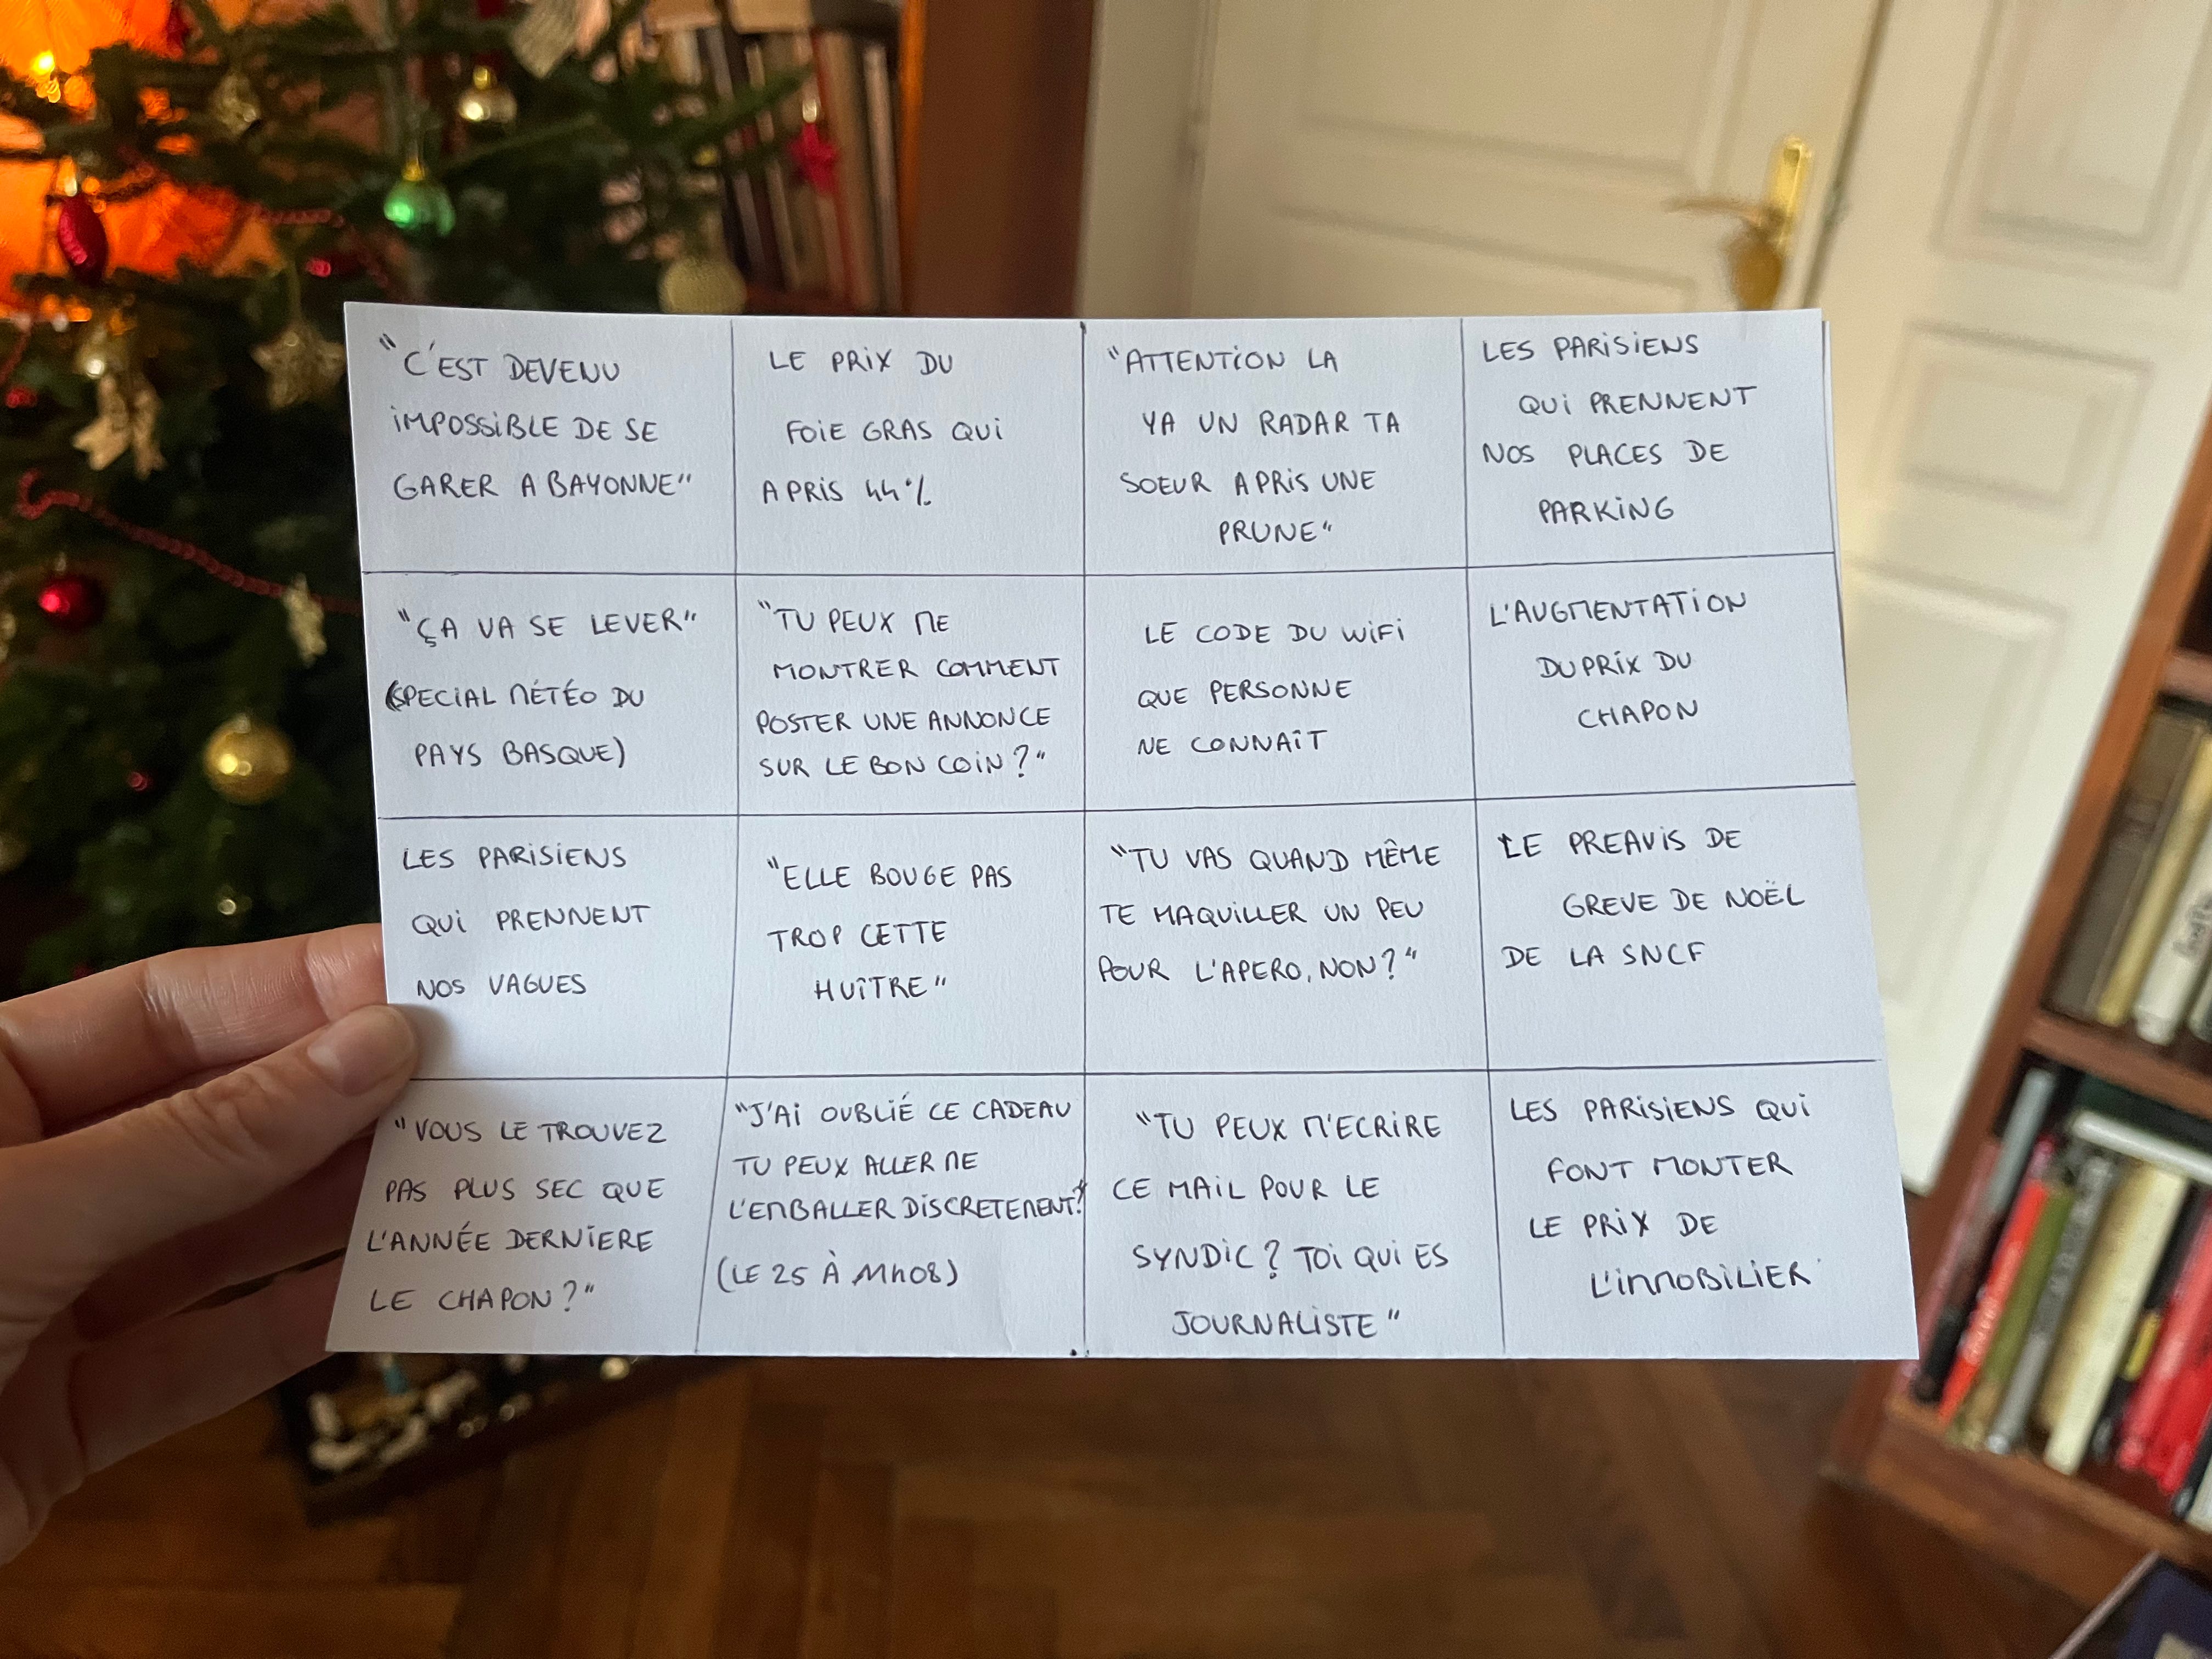 "C'EST DEVENU
IMPOSSIBLE DE SE
GARER A BAYONNE"
LE PRIX DU
FOIE GRAS QUI
A PRIS 44%
"ATTENTION LA
YA UN RADAR TA
SOEUR A PRIS UNE
PRUNE"
LES PARISIENS
QUI PRENNENT
NOS PLACES DE
PARKING
"ÇA VA SE LEVER"
(SPECIAL MÉTÉO DU
PAYS BASQUE)
"TU PEUX ME
MONTRER COMMENT
POSTER UNE ANNONCE
SUR LE BON COIN ?"
LE CODE DU WIFI
QUE PERSONNE
NE CONNAÎT
L'AUGMENTATION
DU PRIX DU
CHAPON
LES PARISIENS
QUI PRENNENT
NOS VAGUES
"ELLE BOUGE PAS
TROP CETTE
HUÎTRE"
"TU VAS QUAND MÊME
TE MAQUILLER UN PEU
POUR L'APERO, NON ?"
LE PREAVIS DE
GREVE DE NOËL
DE LA SNCF
"VOUS LE TROUVEZ
PAS PLUS SEC QUE
L'ANNÉE DERNIERE
LE CHAPON ?"
"J'AI OUBLIÉ CE CADEAU
TU PEUX ALLER ME
L'EMBALLER DISCRETEMENT ?"
(LE 25 À 11h08)
"TU PEUX M'ECRIRE
CE MAIL POUR LE
SYNDIC ? TOI QUI ES
JOURNALISTE"
LES PARISIENS QUI
FONT MONTER
LE PRIX DE
L'IMMOBILIER